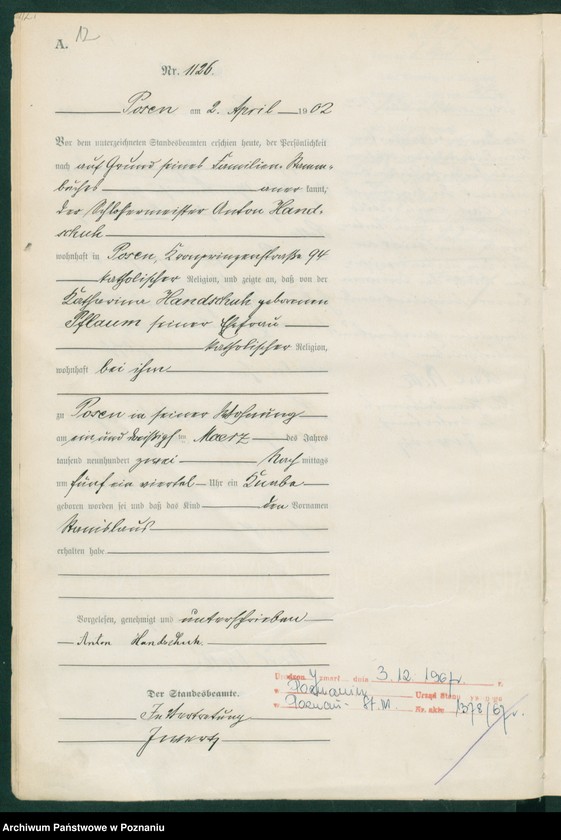 A. 12
Nr. 1126.
Posen am 2. April 1902
Vor dem unterzeichneten Standesbeamten erschien heute, der Persönlichkeit
nach auf Grund seines Familien-Stamm-
buches anerkannt,
der Schlossermeister Anton Hand-
schuh
wohnhaft in Posen, Kronprinzenstraße 94
katholischer Religion, und zeigte an, daß von der
Katharina Handschuh geborenen
Pflaum seiner Ehefrau
katholischer Religion,
wohnhaft bei ihm
zu Posen in seiner Wohnung
am ein und dreißigsten Maerz des Jahres
tausend neunhundert zwei Nachmittags
um fünf ein viertel Uhr ein Knabe
geboren worden sei und daß das Kind den Vornamen
Stanislaus
erhalten habe
Vorgelesen, genehmigt und unterschrieben
Anton Handschuh.
Der Standesbeamte.
In Vertretung
zmarł dnia 3.12.1967r. r.
w Poznaniu Urząd Stanu
w Poznań-St.M Nr. aktu 1378/67r.
Archiwum Państwowe w Poznaniu